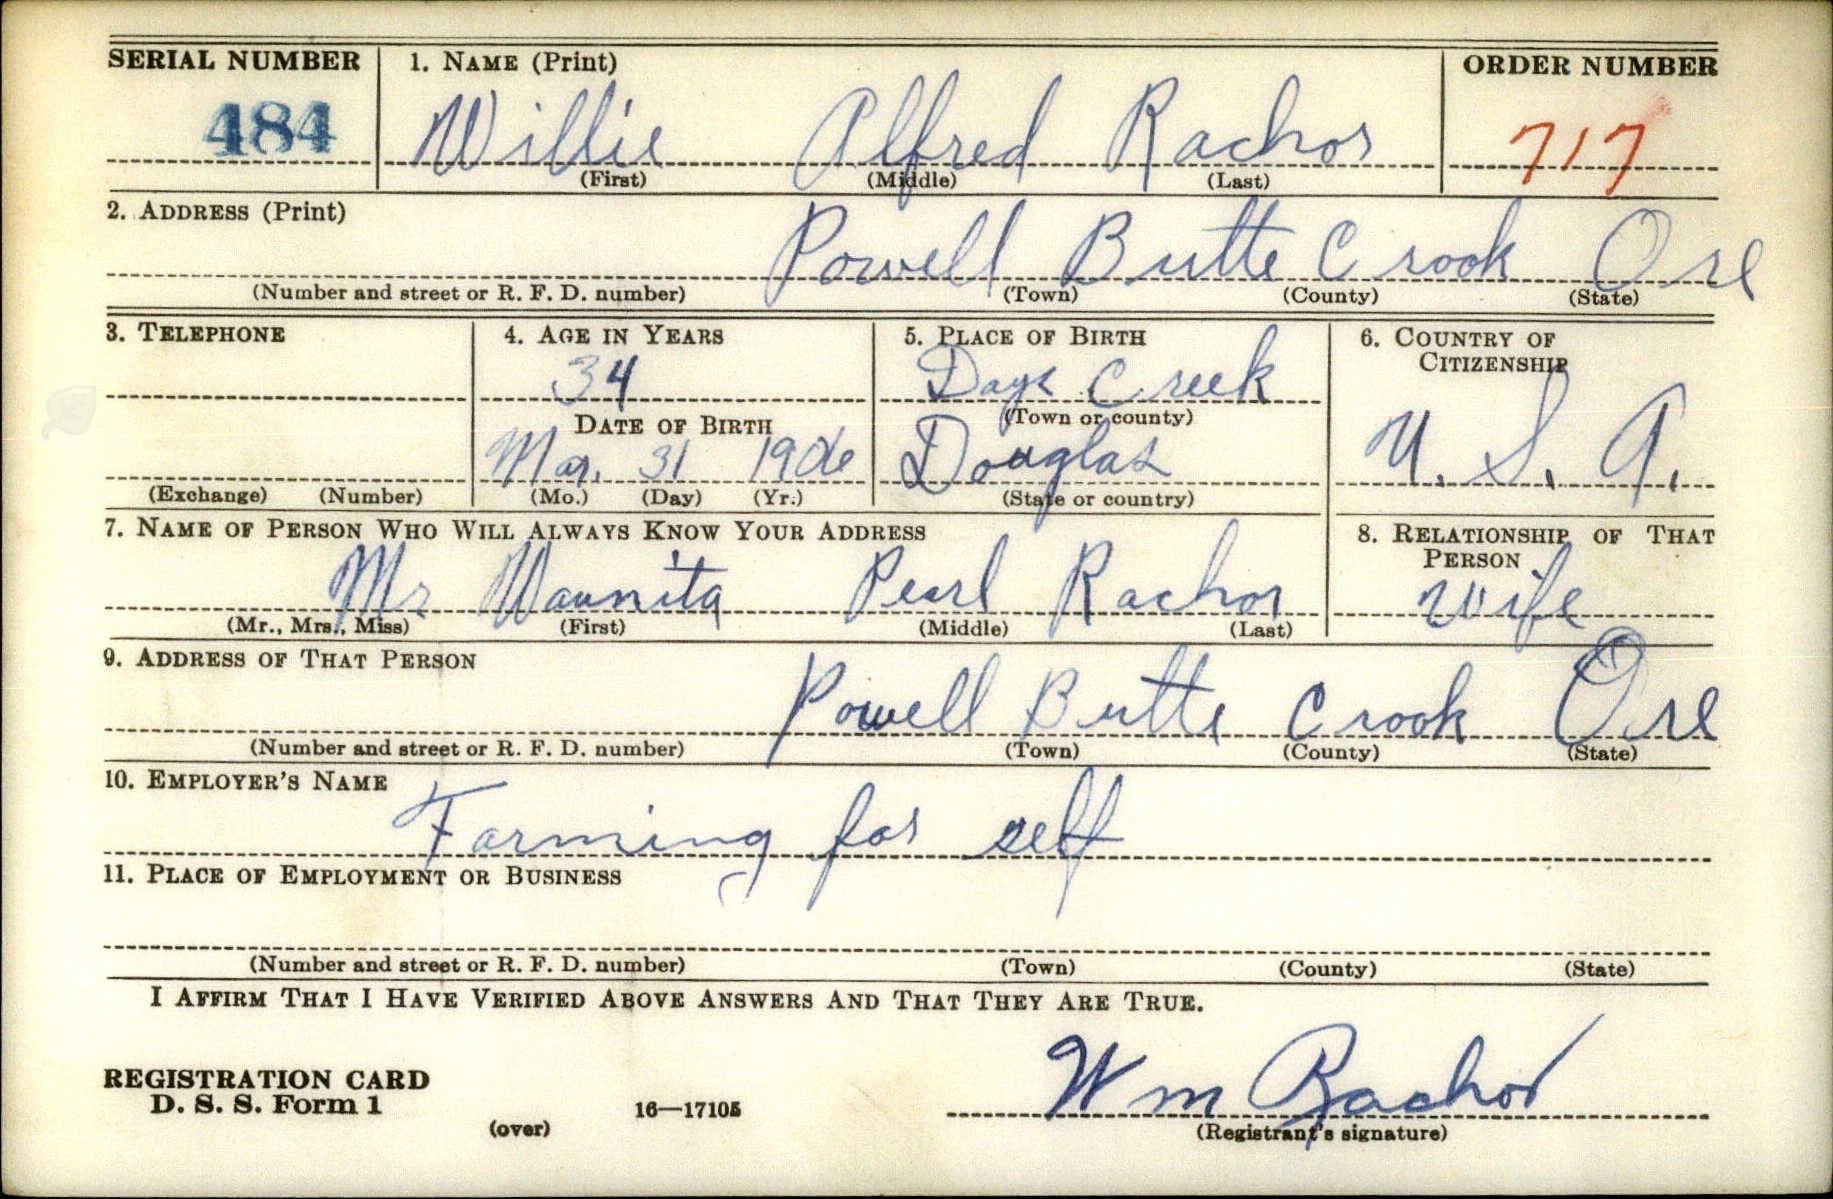 SERIAL NUMBER 1. NAME (Print) ORDER NUMBER
484 Willie Alfred Rachor 717
(First) (Middle) (Last)
2. ADDRESS (Print)
Powell Butte Crook Ore
(Number and street or R. F. D. number) (Town) (County) (State)
3. TELEPHONE 4. AGE IN YEARS 5. PLACE OF BIRTH 6. COUNTRY OF CITIZENSHIP
34 Days Creek
DATE OF BIRTH (Town or county)
Mar. 31 1906 Douglas U. S. A.
(Exchange) (Number) (Mo.) (Day) (Yr.) (State or country)
7. NAME OF PERSON WHO WILL ALWAYS KNOW YOUR ADDRESS 8. RELATIONSHIP OF THAT PERSON
Mrs Waunita Pearl Rachor wife
(Mr., Mrs., Miss) (First) (Middle) (Last)
9. ADDRESS OF THAT PERSON
Powell Butte Crook Ore
(Number and street or R. F. D. number) (Town) (County) (State)
10. EMPLOYER'S NAME
Farming for self
11. PLACE OF EMPLOYMENT OR BUSINESS
(Number and street or R. F. D. number) (Town) (County) (State)
I AFFIRM THAT I HAVE VERIFIED ABOVE ANSWERS AND THAT THEY ARE TRUE.
REGISTRATION CARD
D. S. S. Form 1 16—17105 Wm Rachor
(over) (Registrant's signature)